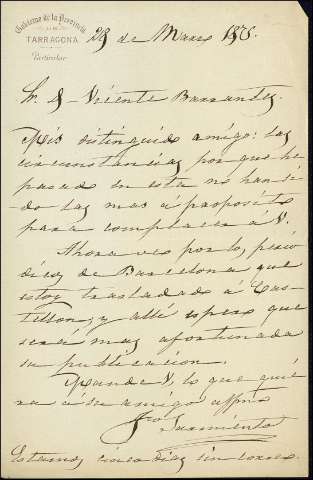 Gobierno de la Provincia
DE
TARRAGONA
Particular
29 de Marzo 1876.
Sr. D. Vicente Barrantes.
Mis distinguido amigo: las
circunstancias por que he
pasado en esta no han si-
do las mas a proposito
para complacer á V.
Ahora veo por los perió
dicos de Barcelona que
estoy trasladado á Cas-
tellon, y allí espero que
será mas afortunada
su publicacion.
Mande V. lo que quie
ra á su amigo affmo
Sarmiento
Estamos cinco dias sin correo.